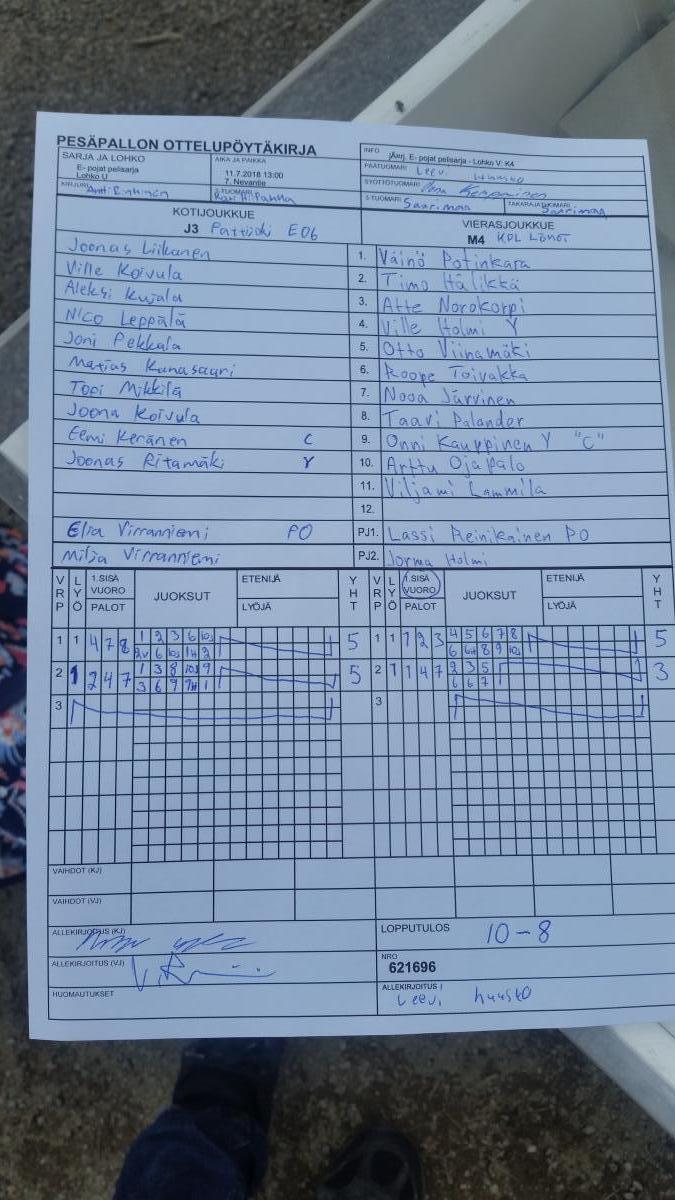 PESÄPALLON OTTELUPÖYTÄKIRJA
SARJA JA LOHKO
E- pojat pelisarja
Lohko U
AIKA JA PAIKKA
11.7.2018 13:00
7. Nevantie
INFO
jÄnj. E- pojat pelisarja - Lohko V: K4
PÄÄTUOMARI Leevi Huusko
SYÖTTÖTUOMARI
KIRJURI
2-TUOMARI
3-TUOMARI Saarimaa
TAKARAJATUOMARI Saarimaa
KOTIJOUKKUE
J3 Pattijoki E06
VIERASJOUKKUE
M4 KPL Lönöt
Joonas Liikanen 1. Väinö Potinkara
Ville Koivula 2. Timo Hälikkä
Aleksi Kujala 3. Atte Norokorpi
Nico Leppälä 4. Ville Holmi Y
Joni Pekkala 5. Otto Viinamäki
Matias Kanasaari 6. Roope Toivakka
Topi Mikkilä 7. Nooa Järvinen
Joona Koivula 8. Taavi Palander
Eemi Keränen C 9. Onni Kauppinen Y "C"
Joonas Ritamäki Y 10. Arttu Ojapalo
11. Viljami Lammila
12.
Elia Virranniemi PO PJ1. Lassi Reinikainen PO
Milja Virranniemi PJ2. Jorma Holmi
VRP LYÖ 1.SISÄ VUORO PALOT JUOKSUT ETENIJÄ LYÖJÄ YHT VRP LYÖ 1.SISÄ VUORO PALOT JUOKSUT ETENIJÄ LYÖJÄ YHT
1 1 4 7 8 1 2 3 6 10J 5 1 1 1 2 3 4 5 6 7 8 5
2 1 2 4 7 1 3 8 10J 9 5 2 1 1 4 7 2 3 5 3
3 6 9 6 6 7
3 3
VAIHDOT (KJ)
VAIHDOT (VJ)
ALLEKIRJOITUS (KJ)
LOPPUTULOS 10-8
ALLEKIRJOITUS (VJ)
NRO
621696
HUOMAUTUKSET
ALLEKIRJOITUS
Leevi Huusko